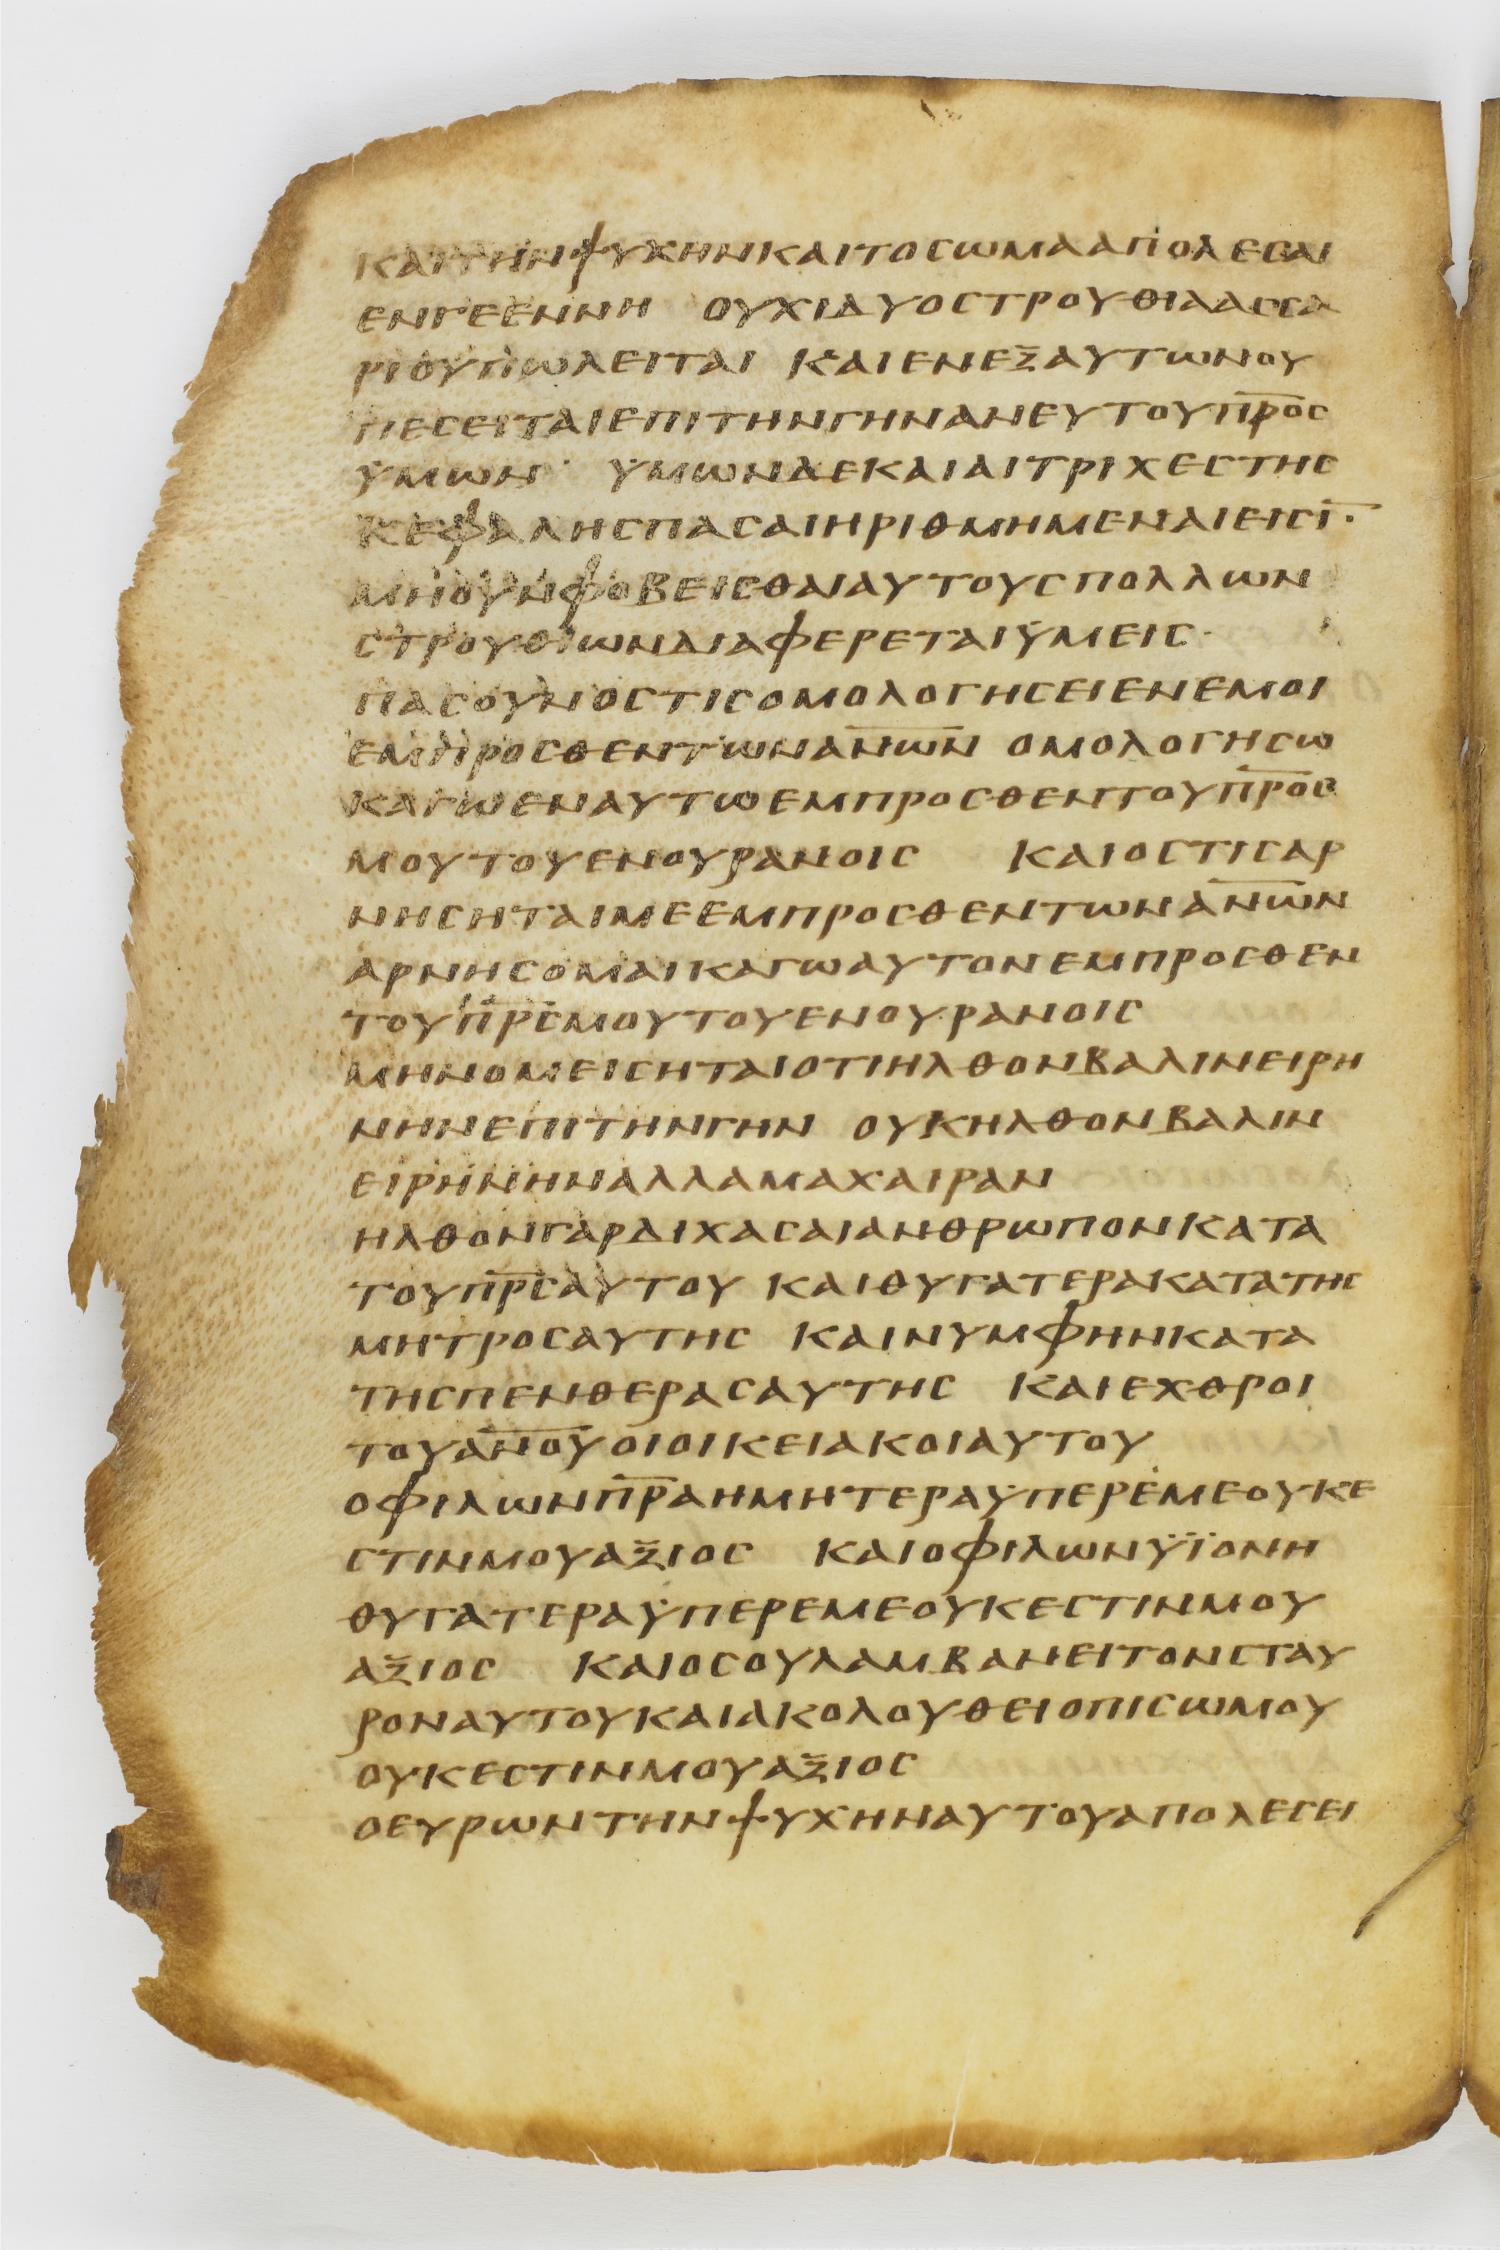 ΚΑΙΤΗΝΨΥΧΗΝΚΑΙΤΟϹΩΜΑΑΠΟΛΕϹΑΙ
ΕΝΓΕΕΝΝΗ ΟΥΧΙΔΥΟϹΤΡΟΥΘΙΑΑϹϹΑ
ΡΙΟΥΠΩΛΕΙΤΑΙ ΚΑΙΕΝΕΞΑΥΤΩΝΟΥ
ΠΕϹΕΙΤΑΙΕΠΙΤΗΝΓΗΝΑΝΕΥΤΟΥΠ̅Ρ̅Ο̅Ϲ
ΫΜΩΝ· ΫΜΩΝΔΕΚΑΙΑΙΤΡΙΧΕϹΤΗϹ
ΚΕΦΑΛΗϹΠΑϹΑΙΗΡΙΘΜΗΜΕΝΑΙΕΙϹΙ̅·
ΜΗΟΥΝΦΟΒΕΙϹΘΑΙΑΥΤΟΥϹΠΟΛΛΩΝ
ϹΤΡΟΥΘΙΩΝΔΙΑΦΕΡΕΤΑΙΫΜΕΙϹ·
ΠΑϹΟΥΝΟϹΤΙϹΟΜΟΛΟΓΗϹΕΙΕΝΕΜΟΙ
ΕΜΠΡΟϹΘΕΝΤΩΝΑ̅Ν̅Ω̅Ν̅ ΟΜΟΛΟΓΗϹΩ
ΚΑΓΩΕΝΑΥΤΩΕΜΠΡΟϹΘΕΝΤΟΥΠ̅Ρ̅Ο̅Ϲ
ΜΟΥΤΟΥΕΝΟΥΡΑΝΟΙϹ ΚΑΙΟϹΤΙϹΑΡ
ΝΗϹΗΤΑΙΜΕΕΜΠΡΟϹΘΕΝΤΩΝΑ̅Ν̅Ω̅Ν
ΑΡΝΗϹΟΜΑΙΚΑΓΩΑΥΤΟΝΕΜΠΡΟϹΘΕΝ
ΤΟΥΠ̅Ρ̅Ϲ̅ΜΟΥΤΟΥΕΝΟΥΡΑΝΟΙϹ
ΜΗΝΟΜΕΙϹΗΤΑΙΟΤΙΗΛΘΟΝΒΑΛΙΝΕΙΡΗ
ΝΗΝΕΠΙΤΗΝΓΗΝ ΟΥΚΗΛΘΟΝΒΑΛΙΝ
ΕΙΡΗΝΗΝΑΛΛΑΜΑΧΑΙΡΑΝ
ΗΛΘΟΝΓΑΡΔΙΧΑϹΑΙΑΝΘΡΩΠΟΝΚΑΤΑ
ΤΟΥΠ̅Ρ̅Ϲ̅ΑΥΤΟΥ ΚΑΙΘΥΓΑΤΕΡΑΚΑΤΑΤΗϹ
ΜΗΤΡΟϹΑΥΤΗϹ ΚΑΙΝΥΜΦΗΝΚΑΤΑ
ΤΗϹΠΕΝΘΕΡΑϹΑΥΤΗϹ ΚΑΙΕΧΘΡΟΙ
ΤΟΥΑ̅Ν̅Ο̅Υ̅ΟΙΟΙΚΕΙΑΚΟΙΑΥΤΟΥ
ΟΦΙΛΩΝΠ̅Ρ̅Α̅ΗΜΗΤΕΡΑΫΠΕΡΕΜΕΟΥΚΕ
ϹΤΙΝΜΟΥΑΞΙΟϹ ΚΑΙΟΦΙΛΩΝΫΪΟΝΗ
ΘΥΓΑΤΕΡΑΫΠΕΡΕΜΕΟΥΚΕϹΤΙΝΜΟΥ
ΑΞΙΟϹ ΚΑΙΟϹΟΥΛΑΜΒΑΝΕΙΤΟΝϹΤΑΥ
ΡΟΝΑΥΤΟΥΚΑΙΑΚΟΛΟΥΘΕΙΟΠΙϹΩΜΟΥ
ΟΥΚΕϹΤΙΝΜΟΥΑΞΙΟϹ
ΟΕΥΡΩΝΤΗΝΨΥΧΗΝΑΥΤΟΥΑΠΟΛΕϹΕΙ